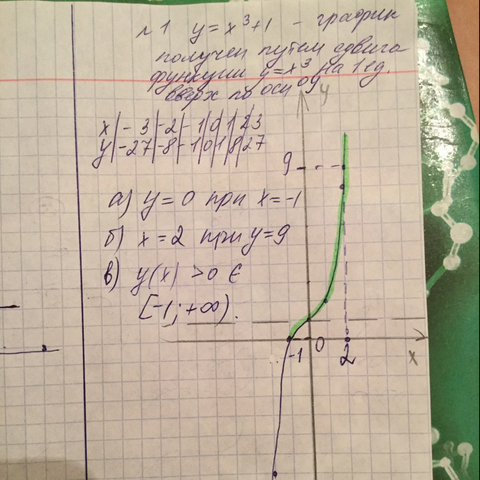 №1 y = x³+1 – график
получен путем сдвига
функции y=x³ на 1 ед.
вверх по оси oy
x|-3|-2|-1|0|1|2|3
y|-27|-8|-1|0|1|8|27
а) y=0 при x=-1
б) x=2 при y=9
в) y(x) >0 ∈
[-1; +∞).
y
9
-1 0 2 x